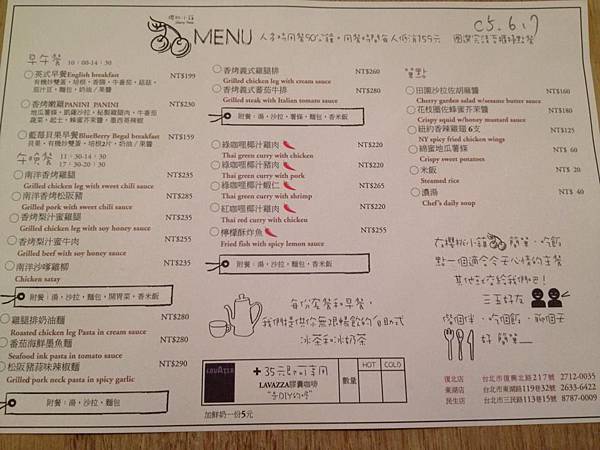 櫻桃小鎮
MENU
人多時用餐90分鐘，用餐時間每人低消159元
C5.6.17
早午餐 10:00-14:30
英式早餐English breakfast NT$199
有機炒雙蛋、培根、香腸、牛番茄、菇菇、
茄汁豆、麵包、奶油/果醬
香烤嫩雞PANINI PANINI NT$230
地瓜薯條、凱薩沙拉、秘製雞腿肉、牛番茄
蔬菜、起士、蜂蜜芥末醬、墨西哥辣椒
藍莓貝果早餐BlueBerry Begal breakfast NT$159
貝果、有機炒雙蛋、培根2片、奶油/果醬
午晚餐 11:30-14:30
17:30-20:30
南洋香烤雞腿 NT$235
Grilled chicken leg with sweet chili sauce
南洋香烤松阪豬 NT$285
Grilled pork with sweet chili sauce
香烤梨汁蜜雞腿 NT$235
Grilled chicken leg with soy honey sauce
香烤梨汁蜜牛肉 NT$255
Grilled beef with soy honey sauce
南洋沙嗲雞柳 NT$235
Chicken satay
附餐：湯，沙拉，麵包，開胃菜，香米飯
雞腿排奶油麵 NT$280
Roasted chicken leg Pasta in cream sauce
番茄海鮮墨魚麵 NT$280
Seafood ink pasta in tomato sauce
松阪豬蒜味辣椒麵 NT$290
Grilled pork neck pasta in spicy garlic
附餐：湯，沙拉，麵包
香烤義式雞腿排 NT$260
Grilled chicken leg with cream sauce
香烤義式蕃茄牛排 NT$280
Grilled steak with Italian tomato sauce
附餐：湯，沙拉，薯條，麵包，香米飯
綠咖哩椰汁雞肉 NT$220
Thai green curry with chicken
綠咖哩椰汁豬肉 NT$220
Thai green curry with pork
綠咖哩椰汁蝦仁 NT$265
Thai green curry with shrimp
紅咖哩椰汁雞肉 NT$220
Thai red curry with chicken
檸檬酥炸魚 NT$255
Fried fish with spicy lemon sauce
附餐：湯，沙拉，麵包，香米飯
每份套餐和早餐，
我們提供你無限暢飲的自助式
冰茶和冰奶茶
LAVAZZA
+35元即可享用
LAVAZZA膠囊咖啡
"手DIY的呀"
數量
HOT COLD
加鮮奶一份5元
單點
田園沙拉佐胡麻醬 NT$160
Cherry garden salad w/sesame butter sauce
花枝圈佐蜂蜜芥茉醬 NT$180
Crispy squid w/honey mustard sauce
紐約香辣雞翅 6支 NT$125
NY spicy fried chicken wings
綿蜜地瓜薯條 NT$ 60
Crispy sweet potatoes
米飯 NT$ 20
Steamed rice
濃湯 NT$ 40
Chef's daily soup
在櫻桃小鎮 簡單、吃飯
點一個適合今天心情的主餐
其他就交給我們吧！
三五好友
做個伴、吃個飯、聊個天
好簡單
復北店 台北市復興北路217號 2712-0035
東湖店 台北市東湖路119巷32號 2633-6422
民生店 台北市三民路113巷15號 8787-0009